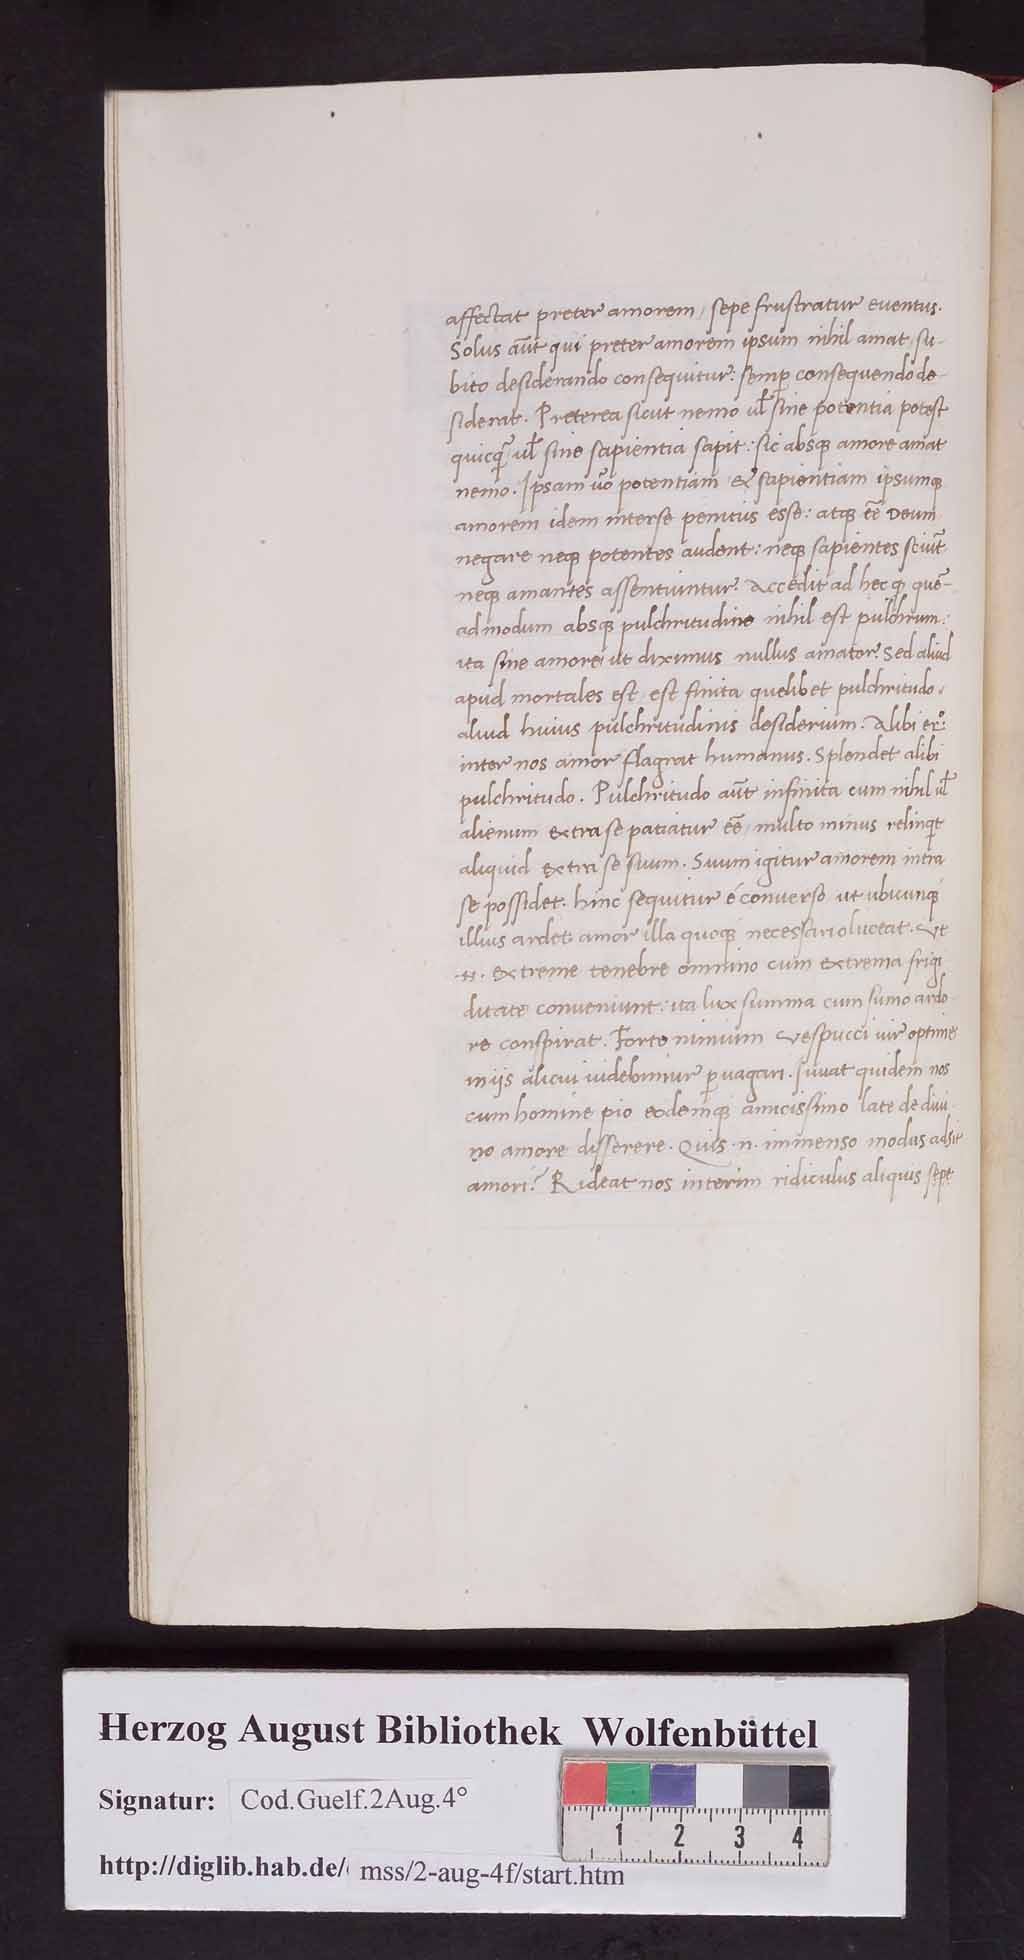 affectat preter amorem, sepe frustratur euentus.
Solus aūt qui preter amorem ipsum nihil amat, su-
bito desiderando consequitur: semp̱ consequendo de-
siderat. Preterea sicut nemo ul̄ sine potentia potest
quicq̄ ul̄ sine sapientia sapit: sic absq; amore amat
nemo. Ipsam uo᷎ potentiam & sapientiam ipsumq;
amorem idem inter se penitus esse: atq; eē Deum
negare neq; potentes audent: neq; sapientes sciūt
neq; amantes assentiuntur. Accedit ad hec q; quē-
admodum absq; pulchritudine nihil est pulchrum:
ita sine amore ut diximus nullus amator. Sed aliud
apud mortales est, est finita quelibet pulchritudo.
aliud huius pulchritudinis desiderium. Alibi er̊:
inter nos amor flagrat humanus. Splendet alibi
pulchritudo. Pulchritudo aūt infinita cum nihil ul̄
alienum extra se patiatur eē, multo minus relinq̇t
aliquid extra se suum. Suum igitur amorem intra
se possidet. hinc sequitur é conuerso ut ubicunq;
illius ardet amor illa quoq; necessario luceat. Ut
.n. extreme tenebre omnino cum extrema frigi
ditate conueniunt: ita lux summa cum sumo ardo-
re conspirat. Forte nimium Vespucci uir optime
in ijs alicui uidebimur p̱uagari. Iuuat quidem nos
cum homine pio eodemq; amicissimo late de diui-
no amore disserere. Quis .n. immenso modus adsit
amori? Rideat nos interim ridiculus aliquis sepe
Herzog August Bibliothek Wolfenbüttel
Signatur: Cod.Guelf.2Aug.4°
1 2 3 4
http://diglib.hab.de/ mss/2-aug-4f/start.htm